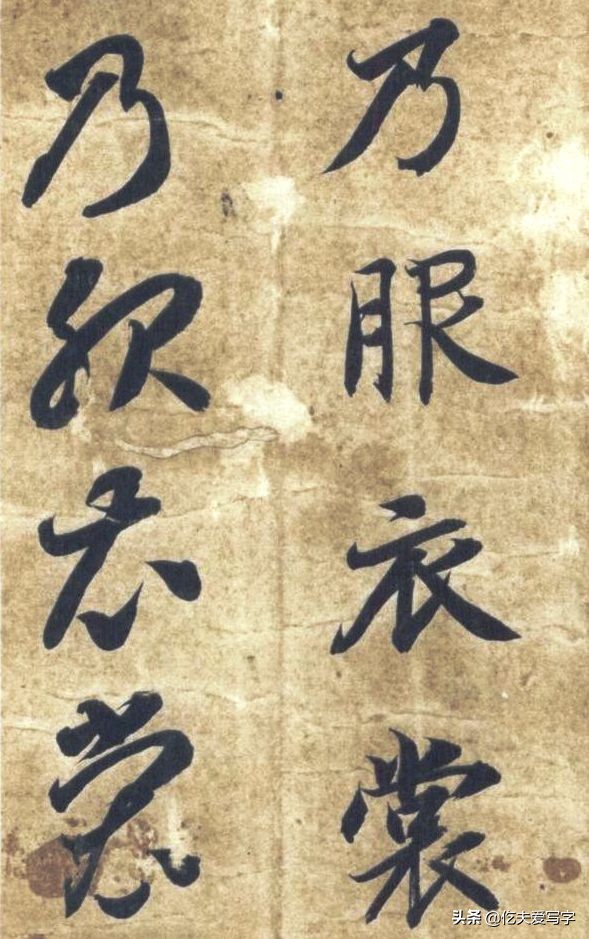 乃服衣裳
乃服衣裳
头条 @仡夫爱写字